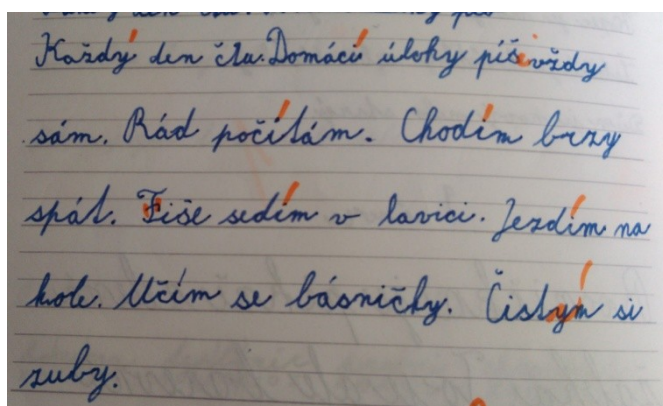 Každý den čtu. Domácí úlohy píši vždy
sám. Rád počítám. Chodím brzy
spát. Tiše sedím v lavici. Jezdím na
kole. Učím se básničky. Čistým si
zuby.